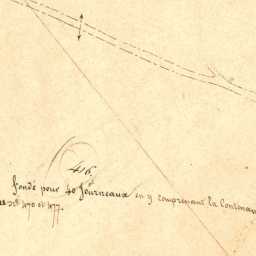 46.
fondé pour 40 Journeaux en y comprenant la Contenan
Nos 470 et 477.